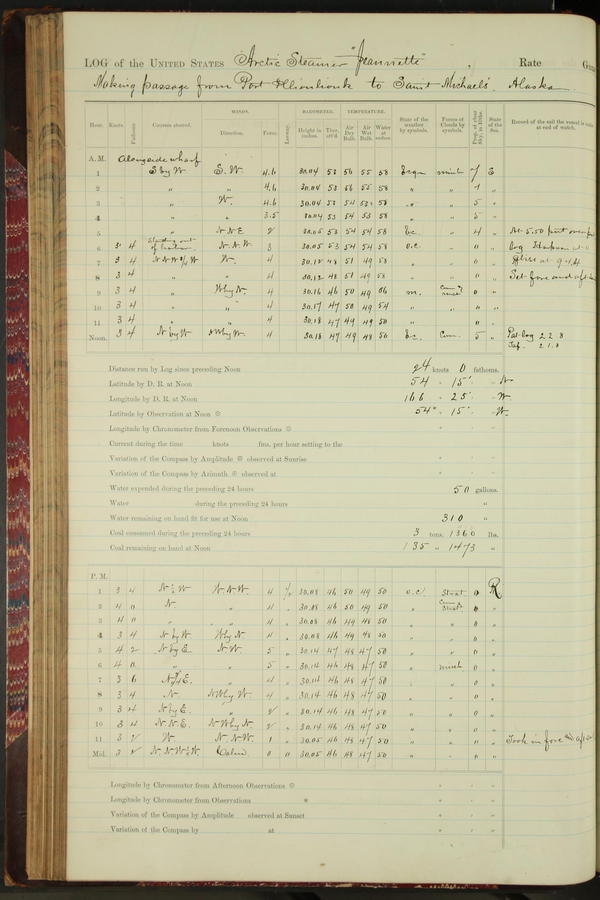 LOG of the UNITED STATES Arctic Steamer "Jeannette", Rate
Making passage from Port to Saint Michaels', Alaska
WINDS. BAROMETER. TEMPERATURE.
Hour. Knots. Fathoms. Courses steered. Direction. Force. Leeway. Height in inches. Ther. att'd. Air Dry Bulb. Air Wet Bulb. Water at State of the weather by symbols. Forms of Clouds by symbols. Prop. of clear Sky, in 10ths. State of the Sea. Record of the sail the vessel is under at end of watch.
A. M. Alongside wharf
1 E by W S. W. 4.6 30.04 53 56 55 58
2 " " 4.6 30.04 53 56 55 58 " "
3 " W. 4.6 30.04 53 54 53 58 " " 5 "
4 " " 3.5 30.04 53 54 53 58 " " 5 "
5 " N.N.E. 2 30.05 53 54 54 58 b.c. " 4 " At 5.50 put over
6 3 4 Standing out of harbor N.N.W. 3 30.05 53 54 54 58 o.c. " 0 " log
7 3 4 W. 4 30.12 48 51 49 53 " " 0 "
8 3 4 " " 4 30.12 48 51 49 53 " " 0 " Set fore and aft
9 3 4 " W by N. 4 30.16 46 50 49 56 m. 0 "
10 3 4 " " 4 30.17 47 50 49 54 " " " "
11 3 4 " " 4 30.18 47 49 49 50 " 0 "
Noon. 3 4 N by W N W by W. 4 30.18 47 49 48 50 b.c. Cum. 5 " Pat. log 22.8
Distance run by Log since preceding Noon 24 knots 0 fathoms.
Latitude by D. R. at Noon 54 ° 15 ' " N
Longitude by D. R. at Noon 166 ° 25 ' " W.
Latitude by Observation at Noon 54° 15'
Longitude by Chronometer from Forenoon Observations
Current during the time knots fms. per hour setting to the
Variation of the Compass by Amplitude observed at Sunrise
Variation of the Compass by Azimuth observed at
Water expended during the preceding 24 hours 50 gallons.
Water during the preceding 24 hours "
Water remaining on hand fit for use at Noon 310 "
Coal consumed during the preceding 24 hours 3 tons. 1360 lbs.
Coal remaining on hand at Noon 135 " 1473 "
P. M.
1 3 4 N ½ W N.N.W. 4 30.08 46 50 49 50 o.c. Strat. 0 R
2 4 0 N. " 4 " 30.08 46 50 49 50 " 0 "
3 4 0 " " 4 " 30.08 46 49 48 50 " " 0 "
4 3 4 N by W. W by N 4 " 30.08 46 49 48 50 " " 0 "
5 4 2 N by E. N.W. 5 " 30.14 47 48 47 50 " " 0 "
6 4 0 " " 5 " 30.14 46 48 47 50 " 0 "
7 3 6 " 4 " 30.14 46 48 47 50 " " 0 "
8 3 4 N. N W by W. 4 " 30.14 46 48 47 50 " " 0 "
9 3 4 N by E. " 2 " 30.14 46 48 47 50 " " 0 "
10 3 4 N.N.E. N W by N. 2 " 30.14 46 48 47 50 " " 0 "
11 3 2 W. N.N.W. 1 " 30.05 46 48 47 50 " " 0 " Took in fore and aft
Mid. 3 2 N.N.W½W. Calm 0 0 30.05 46 48 47 50 " " 0 "
Longitude by Chronometer from Afternoon Observations
Longitude by Chronometer from Observations *
Variation of the Compass by Amplitude observed at Sunset
Variation of the Compass by at